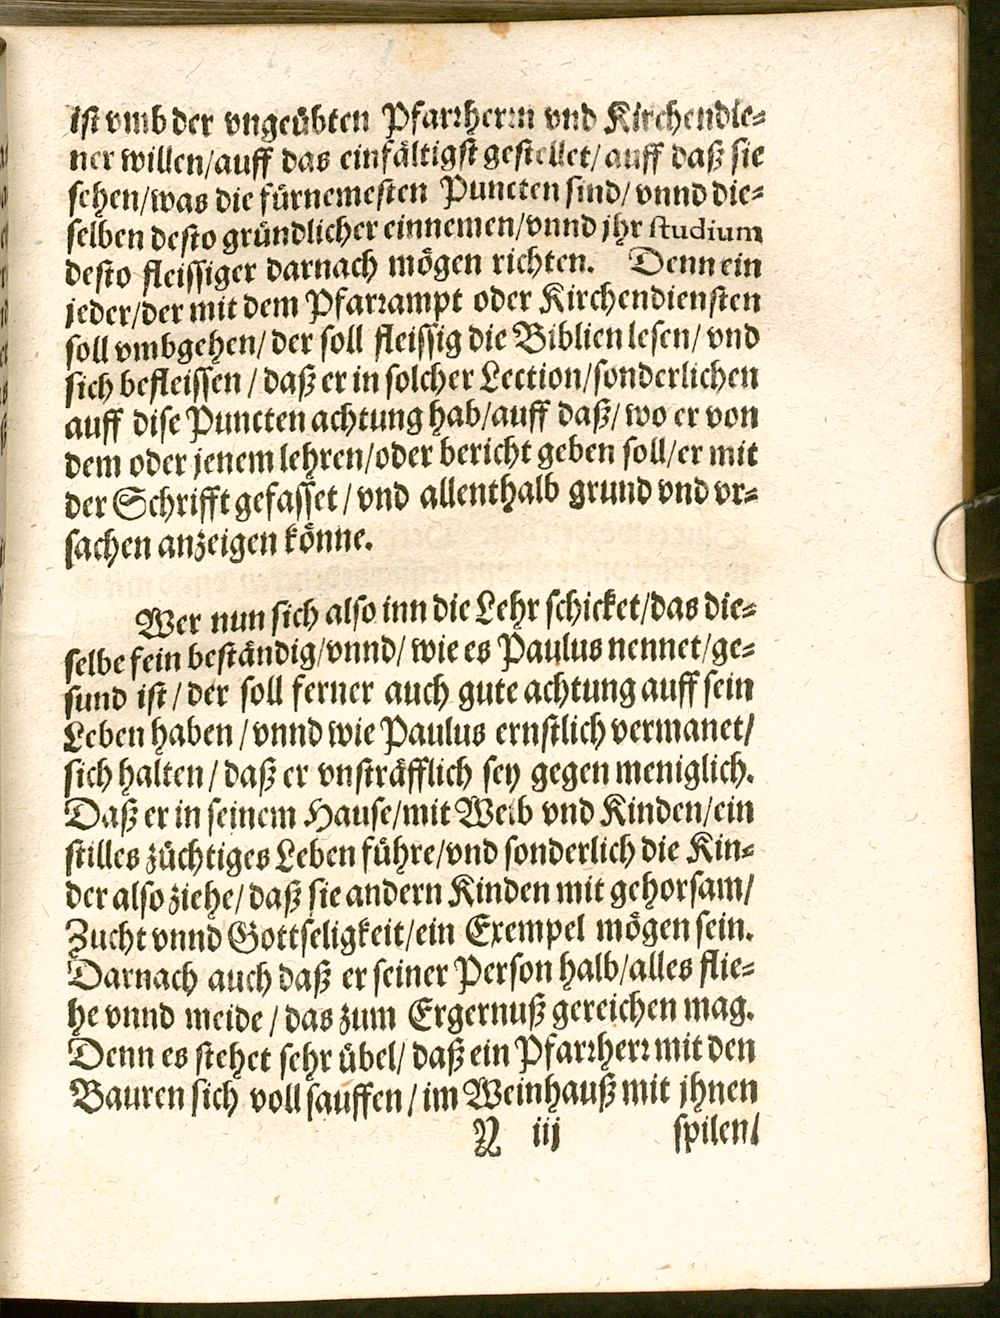 ist vmb der vngeübten Pfarrherrn vnd Kirchendie⸗
ner willen/auff das einfältigst gestellet/auff daß sie
sehen/was die fürnemesten Puncten sind/vnnd die⸗
selben desto gründlicher einnemen/vnnd jhr studium
desto fleissiger darnach mögen richten. Denn ein
jeder/der mit dem Pfarrampt oder Kirchendiensten
soll vmbgehen/der soll fleissig die Biblien lesen/vnd
sich befleissen/daß er in solcher Lection/sonderlichen
auff dise Puncten achtung hab/auff daß/wo er von
dem oder jenem lehren/oder bericht geben soll/er mit
der Schrifft gefasset/vnd allenthalb grund vnd vr⸗
sachen anzeigen könne.
Wer nun sich also inn die Lehr schicket/das die⸗
selbe fein beständig/vnnd/wie es Paulus nennet/ge⸗
sund ist/der soll ferner auch gute achtung auff sein
Leben haben/vnnd wie Paulus ernstlich vermanet/
sich halten/daß er vnsträfflich sey gegen meniglich.
Daß er in seinem Hause/mit Weib vnd Kinden/ein
stilles züchtiges Leben führe/vnd sonderlich die Kin⸗
der also ziehe/daß sie andern Kinden mit gehorsam/
Zucht vnnd Gottseligkeit/ein Exempel mögen sein.
Darnach auch daß er seiner Person halb/alles flie⸗
he vnnd meide/das zum Ergernuß gereichen mag.
Denn es stehet sehr übel/daß ein Pfarrherr mit den
Bauren sich voll sauffen/im Weinhauß mit jhnen
N iij spilen/